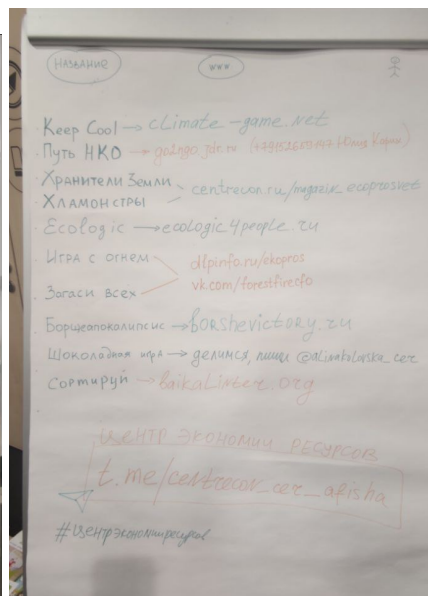 НАЗВАНИЕ www
Keep Cool → climate-game.net
Путь НКО →
Хранители Земли
Хламонстры
centrecon.ru/magazin_ecoprosvet
Ecologic → ecologic4people.ru
Игра с огнем
Загаси всех
dlpinfo.ru/ekopros
vk.com/forestfirecfo
Борщеапокалипсис → borshevictory.ru
Шоколадная игра → делимся, пиши
Сортируй → baikalinter.org
ЦЕНТР ЭКОНОМИИ РЕСУРСОВ
t.me/centrecon_cer_afisha
#центрэкономииресурсов